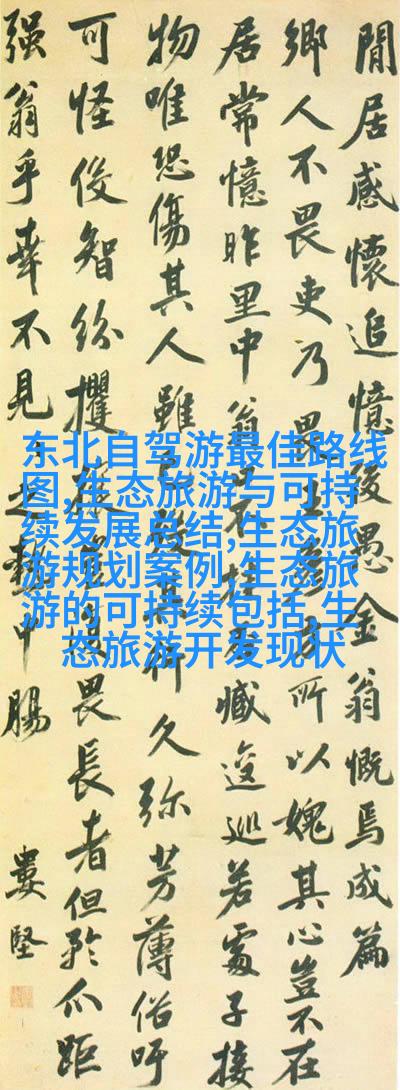 閒居感懷追憶後愚金翁慨焉成篇
鄉人不畏吏乃畏所以媿其心豈不在
居常憶昨里中翁臧逡巡若處子接
物唯恐傷其人雖久弥芳薄俗吁
可怪俊智紛攫畏長者但矜爪距
强翁乎幸不見之熱中腸
婁堅
东北自驾游最佳路线
图,生态旅游与可持
续发展总结,生态旅
游规划案例,生态旅
游的可持续包括,生
态旅游开发现状